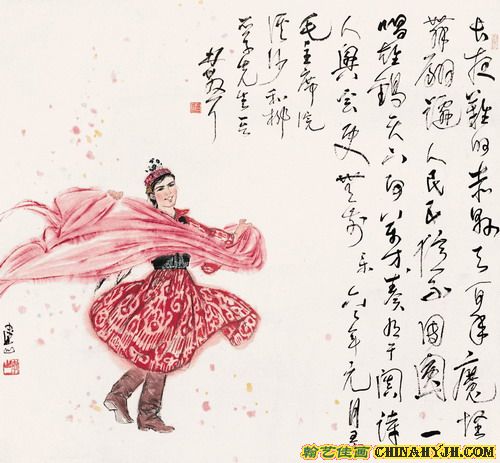 长夜难明赤县天百年魔怪
舞翩躚人民五億不團圓一
唱雄鷄天下白萬方樂奏有于闐詩
人興會更無前
毛主席浣
溪沙和柳
亚子先生
林散耳
翰艺佳画 CHINAHYJH.COM